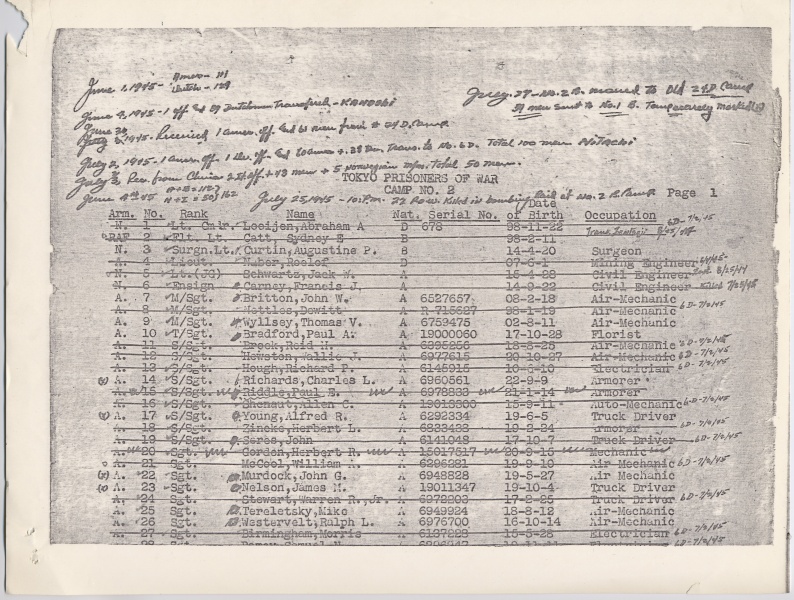 June 1, 1945 - Amer - 111
Dutch - 129
June 9, 1945 - 1 off. Ed 29 Dutchmen Transfered - KANOSHI
July 29 - No. 2 B. moved to Old 24D Camp
59 men sent to No. 1 B. Temporarily marked (x)
June 30, 1945 - Received 1 amer. off. Ed 60 men from # 24 D. Camp
July 2, 1945 - 1 amer. off - 1 off. Ed 60 amer + 38 Trans. to No. 6 D. Total 100 men
July 3, Rec. from Chiva 2 off + 43 men + 5 Norwegian Total 50 men.
TOKYO PRISONERS OF WAR
CAMP NO. 2
June 4th '45
July 25, 1945 - 10 P.M. 22 P.o.w. killed in bombing Raid at No. 2 B. Camp
Page 1
Date
Arm. No. Rank Name Nat. Serial No. of Birth Occupation
N. 1 Lt. Cmdr. Looijen, Abraham A D 678 98-11-22 6D-7/2/45
RAF 2 Flt. Lt. Catt, Sydney E B 98-2-11
N. 3 Surgn.Lt. Curtin, Augustine P. B 14-4-20 Surgeon
A. 4 Lieut. Huber, Roelof D 07-6-1 Mining Engineer
N. 5 Lt.(JG) Schwartz, Jack W. A 15-4-28 Civil Engineer
N. 6 Ensign Carney, Francis J. A 14-9-22 Civil Engineer Killed 7/25/45
A. 7 M/Sgt. Britton, John W. A 6527657 08-2-18 Air-Mechanic
A. 8 M/Sgt. Nettles, Dewitt A R-715627 98-1-19 Air-Mechanic 6D-7/2/45
A. 9 M/Sgt. Wyllsey, Thomas V. A 6759475 02-8-11 Air-Mechanic
A. 10 T/Sgt. Bradford, Paul A. A 19000060 17-10-28 Florist
A. 11 S/Sgt. Brock, Reid H. A 6395256 18-8-25 Air-Mechanic 6D-7/2/45
A. 12 S/Sgt. Hewston, Wallie J. A 6977615 20-10-27 Air-Mechanic 6D-7/2/45
A. 13 S/Sgt. Hough, Richard P. A 6145915 10-6-10 Electrician 6D-7/2/45
(x) A. 14 S/Sgt. Richards, Charles L. A 6960561 22-9-9 Armorer
A. 15 S/Sgt. Riddle, Paul E. A 6978833 21-1-14 Armorer
A. 16 S/Sgt. Shenaut, Allen C. A 19018300 15-9-11 Auto-Mechanic 6D-7/2/45
(x) A. 17 S/Sgt. Young, Alfred R. A 6282334 19-6-5 Truck Driver
A. 18 S/Sgt. Zincke, Herbert L. A 6833433 19-2-24 Armorer 6D-7/2/45
A. 19 S/Sgt. Seres, John A 6141048 17-10-7 Truck Driver 6D-7/2/45
A. 20 Sgt. Gordon, Herbert R. A 15017517 20-9-15 Mechanic
A. 21 Sgt. McCool, William A. A 6296281 19-9-10 Air Mechanic 6D-7/2/45
(x) A. 22 Sgt. Murdock, John G. A 6948828 19-5-27 Air Mechanic
(x) A. 23 Sgt. Nelson, James M. A 19011347 19-10-4 Truck Driver
A. 24 Sgt. Stewart, Warren R., Jr. A 6972203 17-2-25 Truck Driver 6D-7/2/45
A. 25 Sgt. Tereletsky, Mike A 6949924 18-8-12 Air-Mechanic
A. 26 Sgt. Westervelt, Ralph L. A 6976700 16-10-14 Air-Mechanic
A. 27 Sgt. Birmingham, Morris A 6137228 15-5-28 Electrician 6D-7/2/45